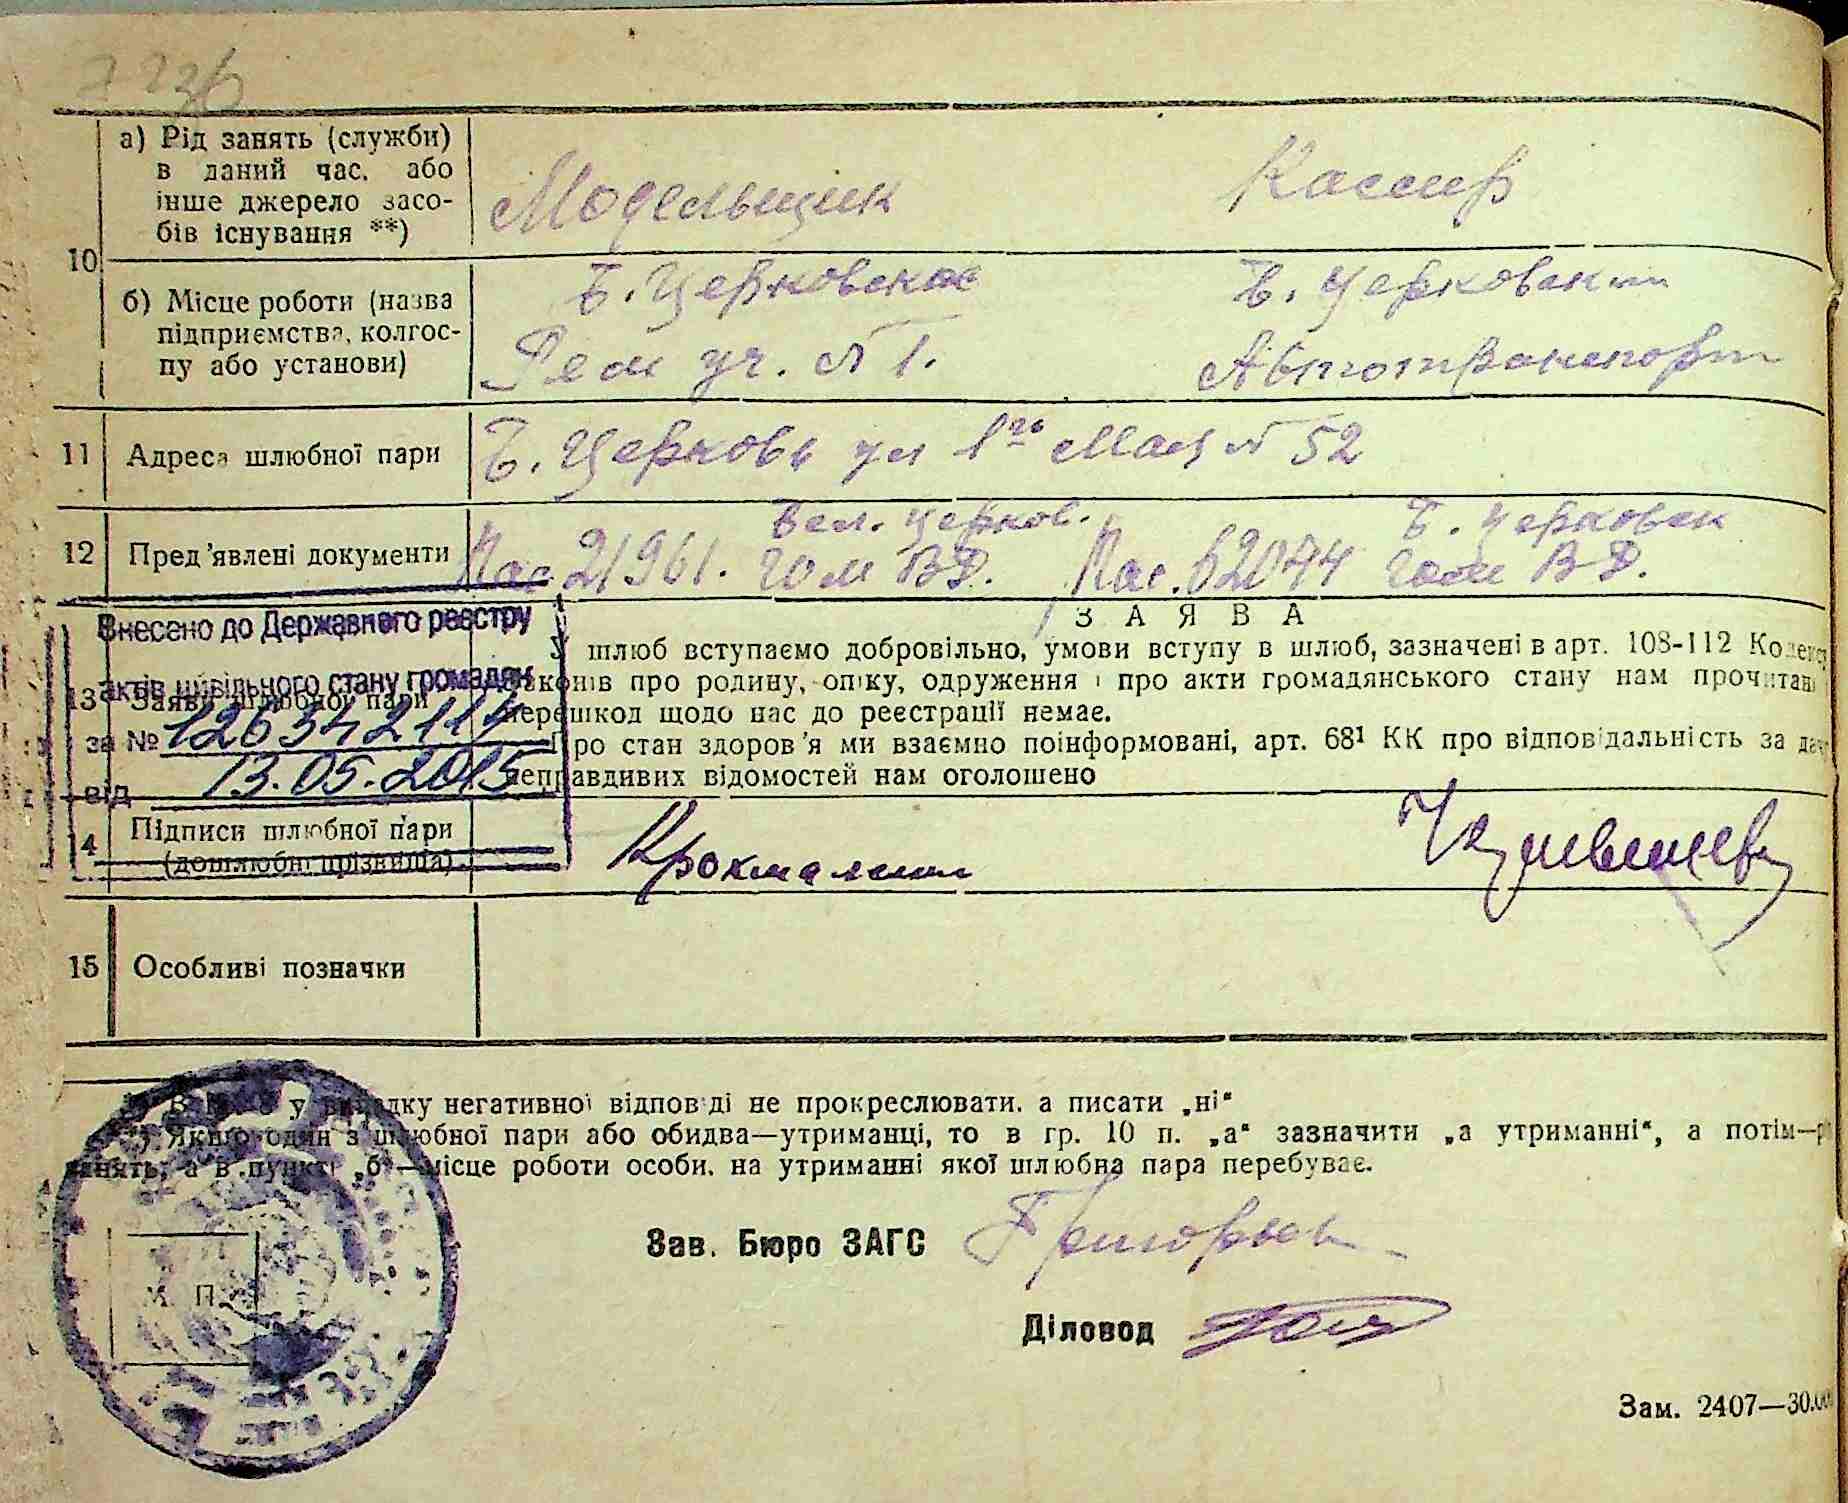 а) Рід занять (служби)
в даний час, або
інше джерело засо-
бів існування **)
Модельщик
Кассир
10
б) Місце роботи (назва
підприємства, колгос-
пу або установи)
Б. Церковское
Рем уч. №1.
Б. Церковский
Автотранспорт
11 Адреса шлюбної пари
Б. Церковь ул 1го Мая № 52
12 Пред'явлені документи
Пас. 21961. Бел. церков. гом ВД.
Пас. 62044 Б. Церковск гом ВД.
Внесено до Державного реєстру
актів цивільного стану громадян
за № 126342114
від 13.05.2015
13 Заяви шлюбної пари
ЗАЯВА
У шлюб вступаємо добровільно, умови вступу в шлюб, зазначені в арт. 108-112
законів про родину, опіку, одруження і про акти громадянського стану нам прочитані
перешкод щодо нас до реєстрації немає.
Про стан здоров'я ми взаємно поінформовані, арт. 68¹ КК про відповідальність за
неправдивих відомостей нам оголошено
14 Підписи шлюбної пари
(дошлюбні прізвища)
15 Особливі позначки
у випадку негативної відповіді не прокреслювати, а писати „ні“
**) Якщо один з шлюбної пари або обидва—утриманці, то в гр. 10 п. „а“ зазначити „а утриманні“, а потім—
занять, а в пункті „б“—місце роботи особи, на утриманні якої шлюбна пара перебуває.
М. П.
Зав. Бюро ЗАГС
Діловод
Зам. 2407—30.00